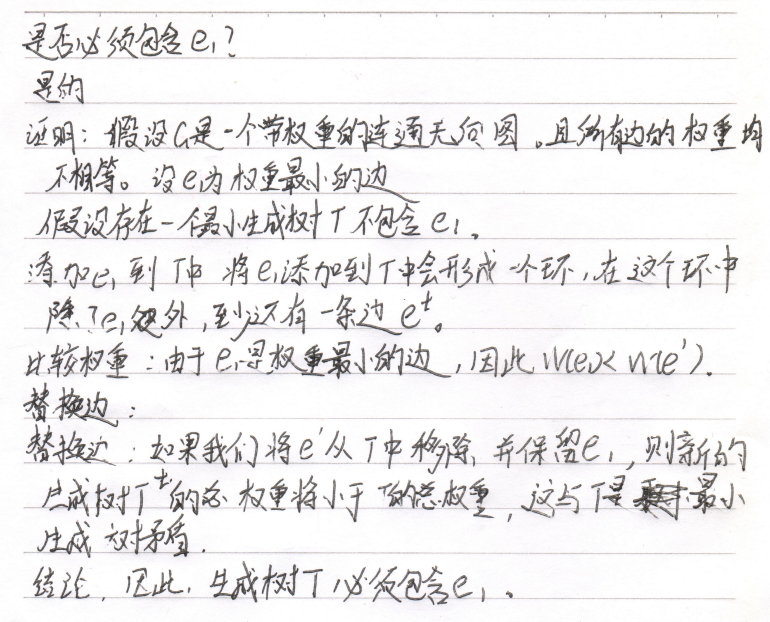 是否必须包含e₁?
是的
证明:假设G是一个带权重的连通无向图。且所有边的权重均
不相等。设e₁为权重最小的边
假设存在一个最小生成树T不包含e₁。
添加e₁到T中 将e₁添加到T中会形成一个环,在这个环中
除了e₁以外,至少还有一条边e't。
比较权重:由于e₁是权重最小的边,因此W(e₁)<W(e')。
替换边:
替换边:如果我们将e'从T中移除,并保留e₁,则新的
生成树T'的总权重将小于T的总权重,这与T是最小
生成树矛盾.
结论,因此,生成树T必须包含e₁。